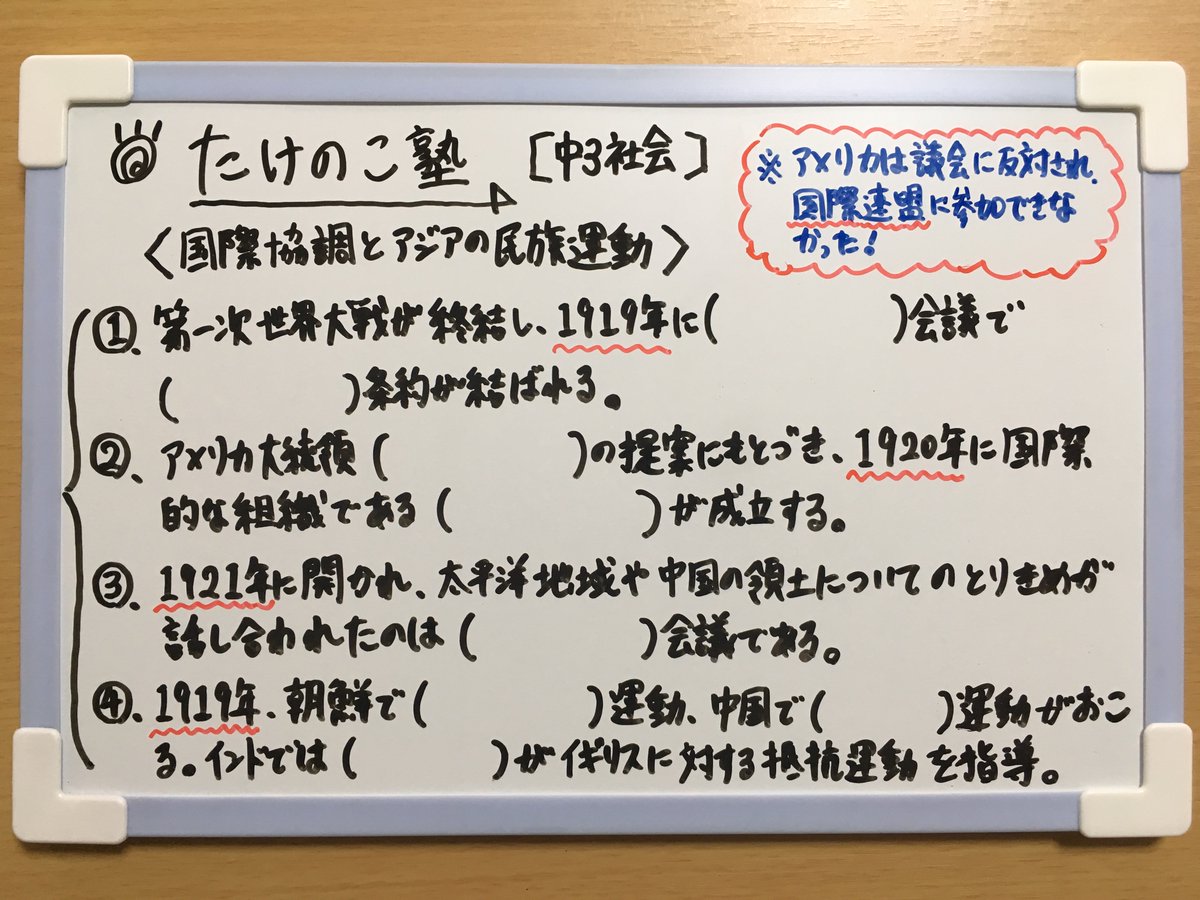 たけのこ塾 [中3社会]
※ アメリカは議会に反対され、
国際連盟に参加できな
かった!
〈国際協調とアジアの民族運動〉
①. 第一次世界大戦が終結し、1919年に( )会議で
( )条約が結ばれる。
②. アメリカ大統領( )の提案にもとづき、1920年に国際
的な組織である( )が成立する。
③. 1921年に開かれ、太平洋地域や中国の領土についてのとりきめが
話し合われたのは( )会議である。
④. 1919年、朝鮮で( )運動、中国で( )運動がおこ
る。インドでは( )がイギリスに対する抵抗運動を指導。